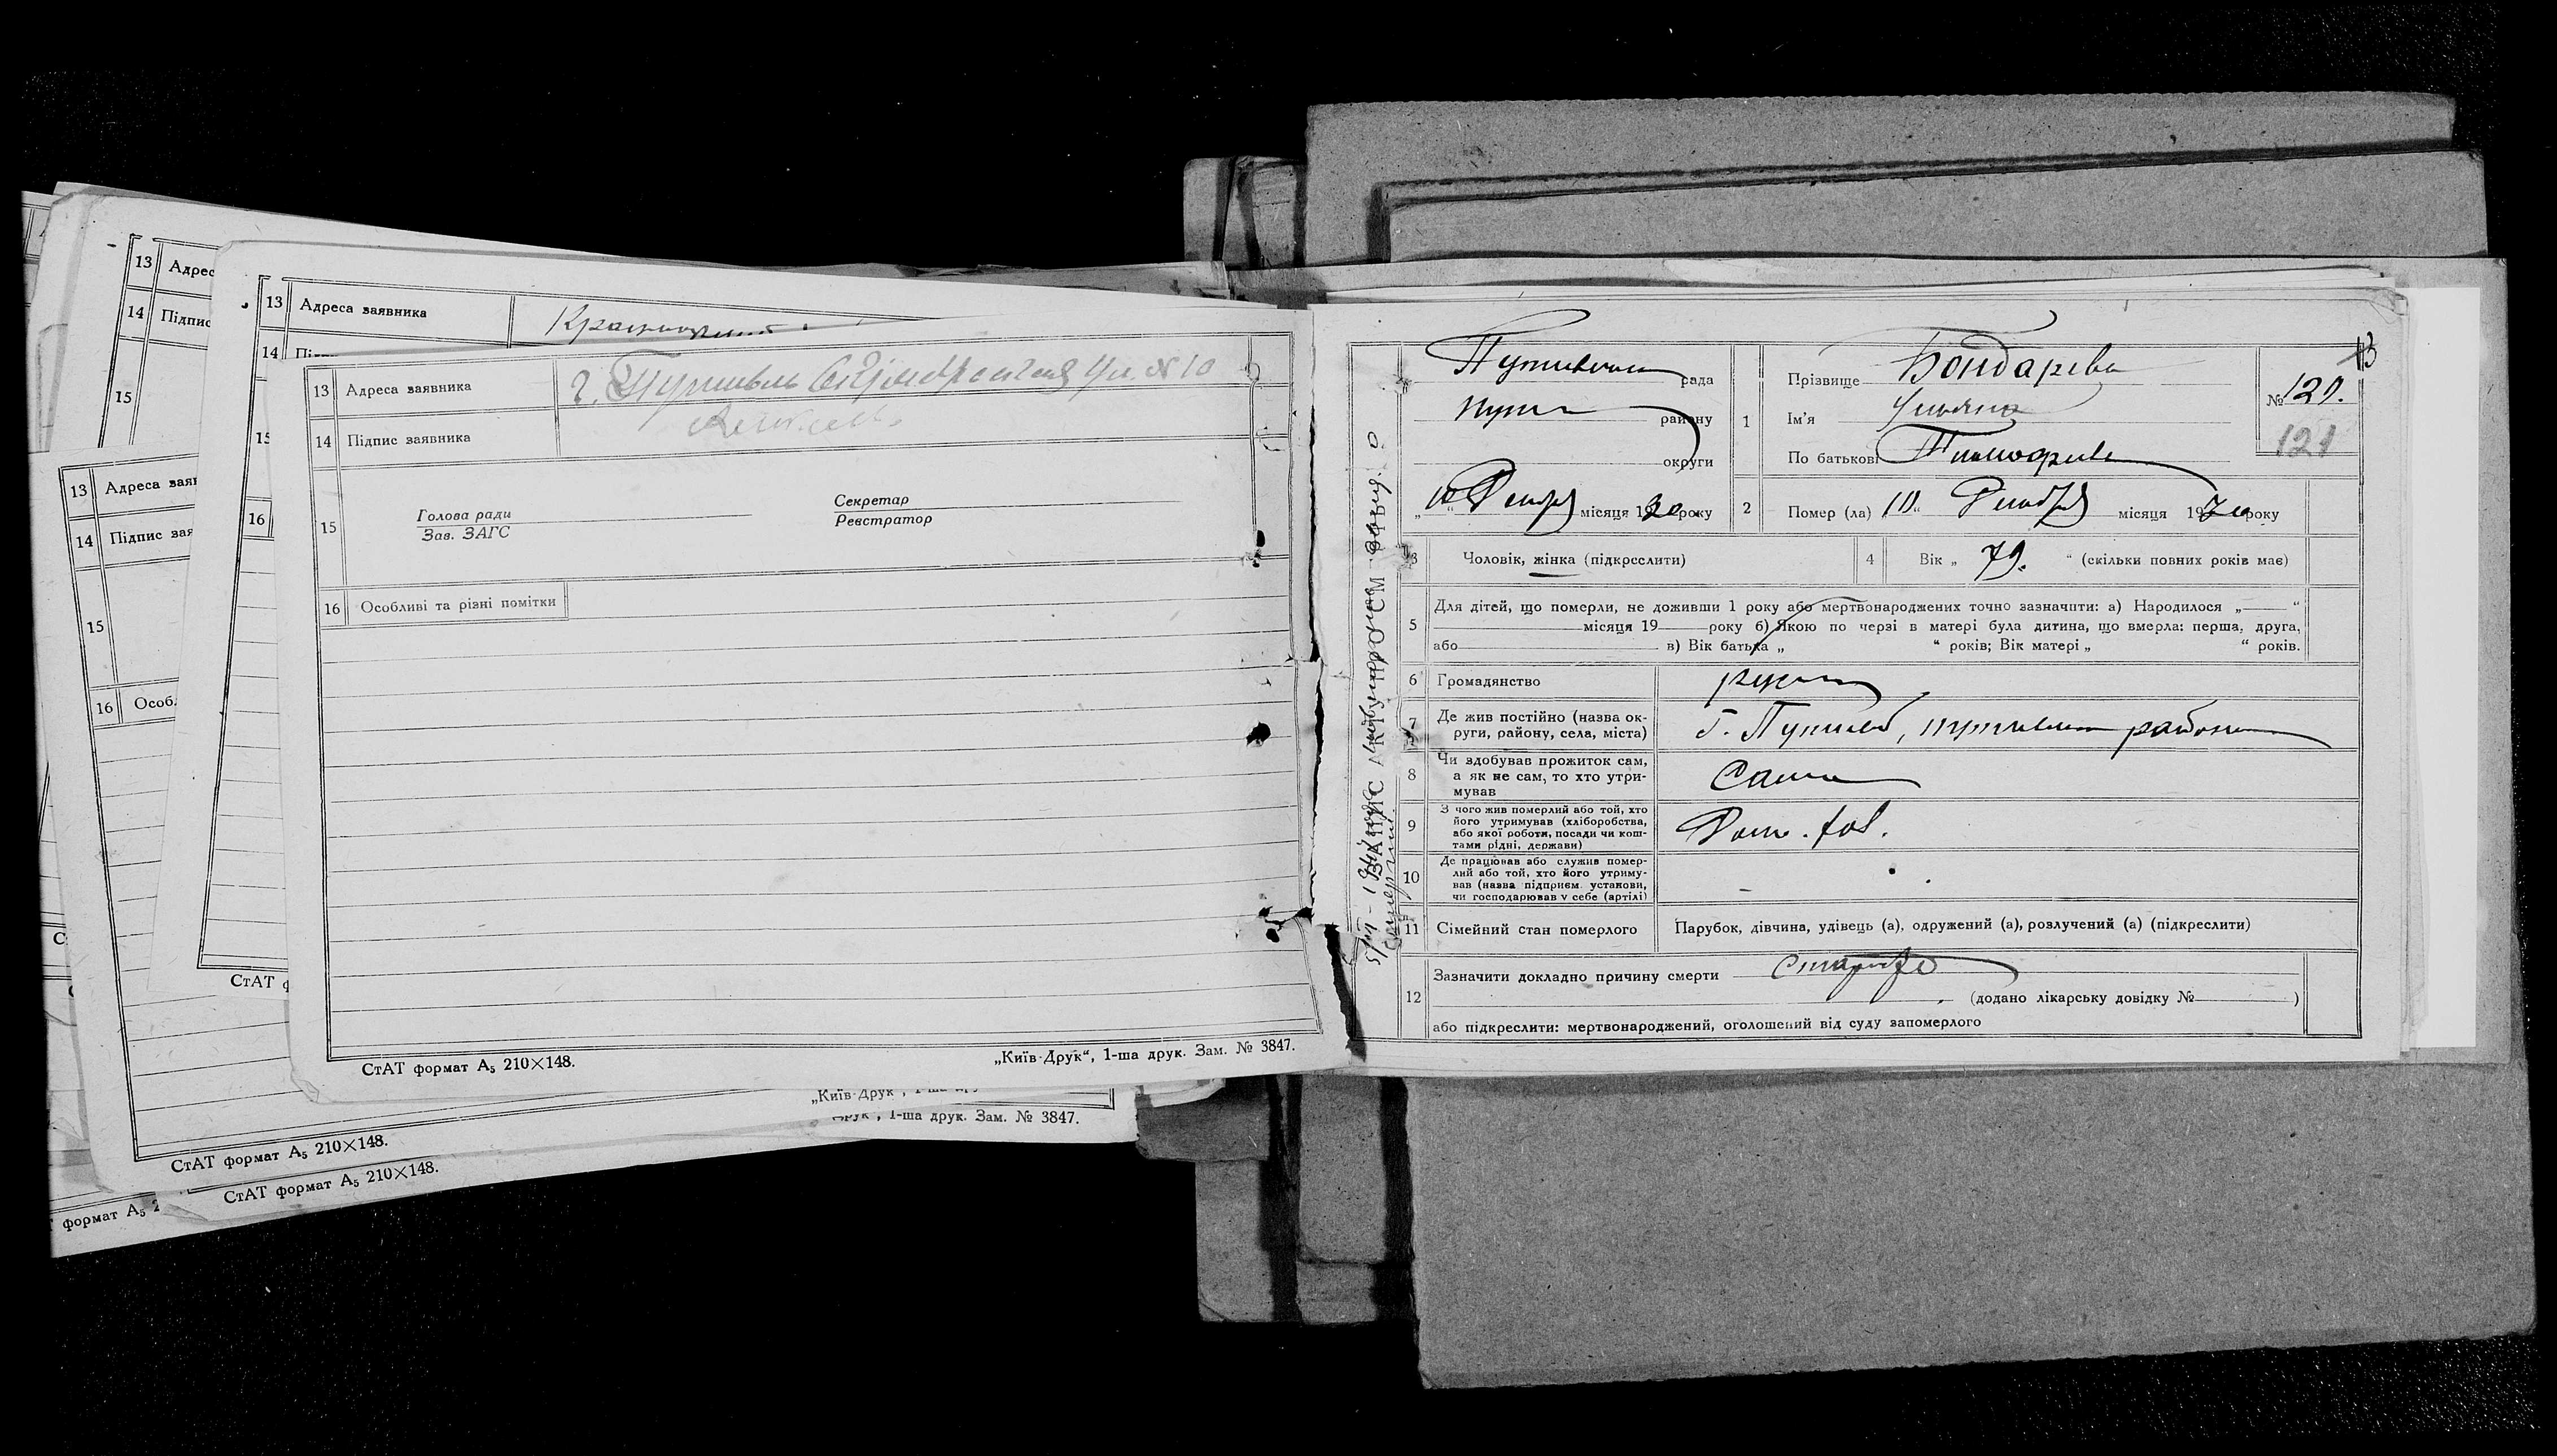 13 Адрес
14 Підпис
15
13 Адреса заявника
Красно
14
15
16
13 Адреса заяв
14 Підпис зая
15
16 Особ
13 Адреса заявника г. Путивль Октябрьская ул. № 10
14 Підпис заявника
15 Голова ради
Зав. ЗАГС
Секретар
Реєстратор
16 Особливі та різні помітки
СтАТ формат А5 210×148.
„Київ-Друк“, 1-ша друк. Зам. № 3847.
„Київ-Друк
Друк“, 1-ша друк. Зам. № 3847.
СтАТ
СтАТ формат А5 210×148.
СтАТ формат А5 210×148.
формат А5 2
ЗАПИС АКТУ ПРО СМ
Путивльск рада
Пути району
округи
„10“ Декабр місяця 1930 року
1 Прізвище Бондарева
Ім'я Ульяна
По батькові Тимофеев
№ 121.
121
13
2 Помер (ла) „10“ Декабр місяця 1930 року
3 Чоловік, жінка (підкреслити)
4 Вік „ 79. “ (скільки повних років має)
5 Для дітей, що померли, не доживши 1 року або мертвонароджених точно зазначити: а) Народилося „ “
місяця 19 року б) Якою по черзі в матері була дитина, що вмерла: перша, друга,
або в) Вік батька „ “ років; Вік матері „ “ років.
6 Громадянство русск
7 Де жив постійно (назва ок-
руги, району, села, міста)
г. Путивль, путивльск района
8 Чи здобував прожиток сам,
а як не сам, то хто утри-
мував
Сама
9 З чого жив померлий або той, хто
його утримував (хліборобства,
або якої роботи, посади чи кош-
тами рідні, держави)
Дом. хоз.
10 Де працював або служив помер-
лий або той, хто його утриму-
вав (назва підприєм. установи,
чи господарював у себе (артілі)
–
11 Сімейний стан померлого
Парубок, дівчина, удівець (а), одружений (а), розлучений (а) (підкреслити)
12 Зазначити докладно причину смерти Старость
(додано лікарську довідку № )
або підкреслити: мертвонароджений, оголошений від суду запомерлого